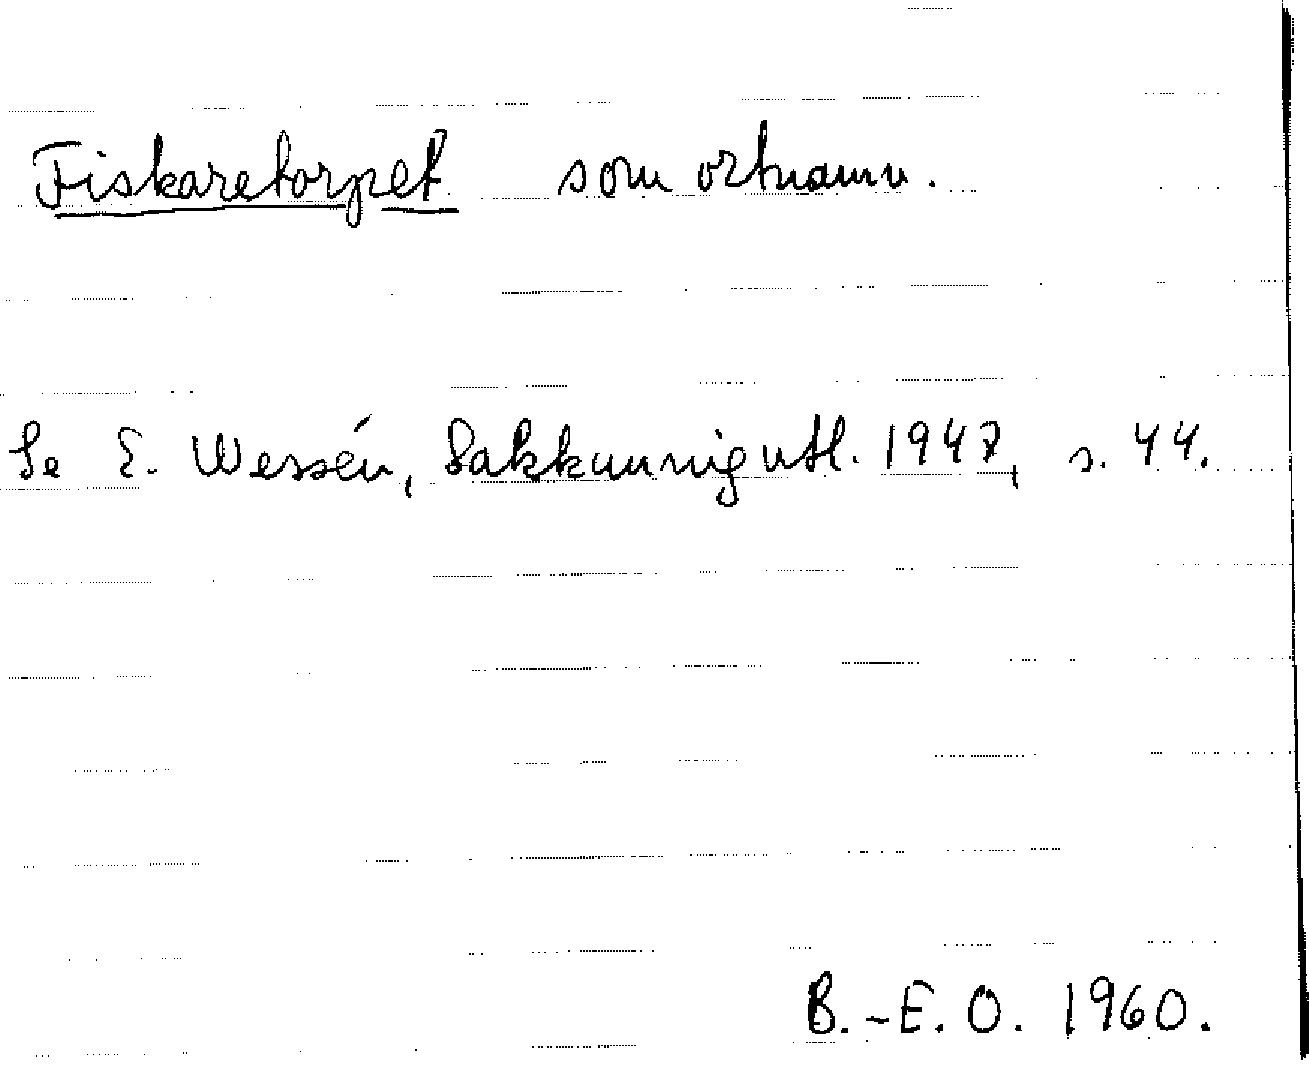 Fiskaretorpet som ortnamn.
Se E. Wessén, Sakkunnigutl. 1947, s. 44.
B.-E. O. 1960.